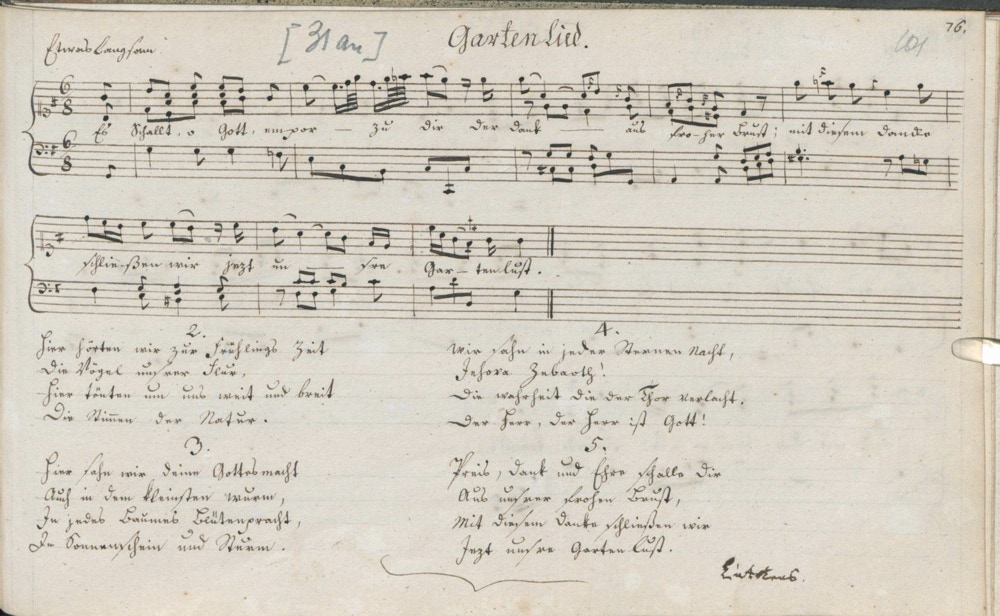 76.
Garten Lied.
Etwas Langsam
6 8
Es Schallt, o Gott, empor — zu dir der Dank aus fro-her Brust; mit diesem Danke
6 8
schließen wir jezt un — sre Gar-tenlust.
2.
Hier hörten wir zur Frühlings Zeit
Die Vögel unsrer Flur,
Hier tönten um uns weit und breit
Die Stimen der Natur.
3.
Hier sahn wir deine Gottesmacht
Auch in dem kleinsten Wurm,
In jedes Baumes Blütenpracht,
In Sonnenschein und Sturm.
4.
Wir sahn in jeder Sternen Nacht,
Jehova Zebaoth!
Die Wahrheit die der Thor verlacht.
Der Herr, der Herr ist Gott!
5.
Preis, Dank und Ehre schalle dir
Aus unsrer frohen Brust,
Mit diesem Danke schließen wir
Jezt unsre Garten Lust.